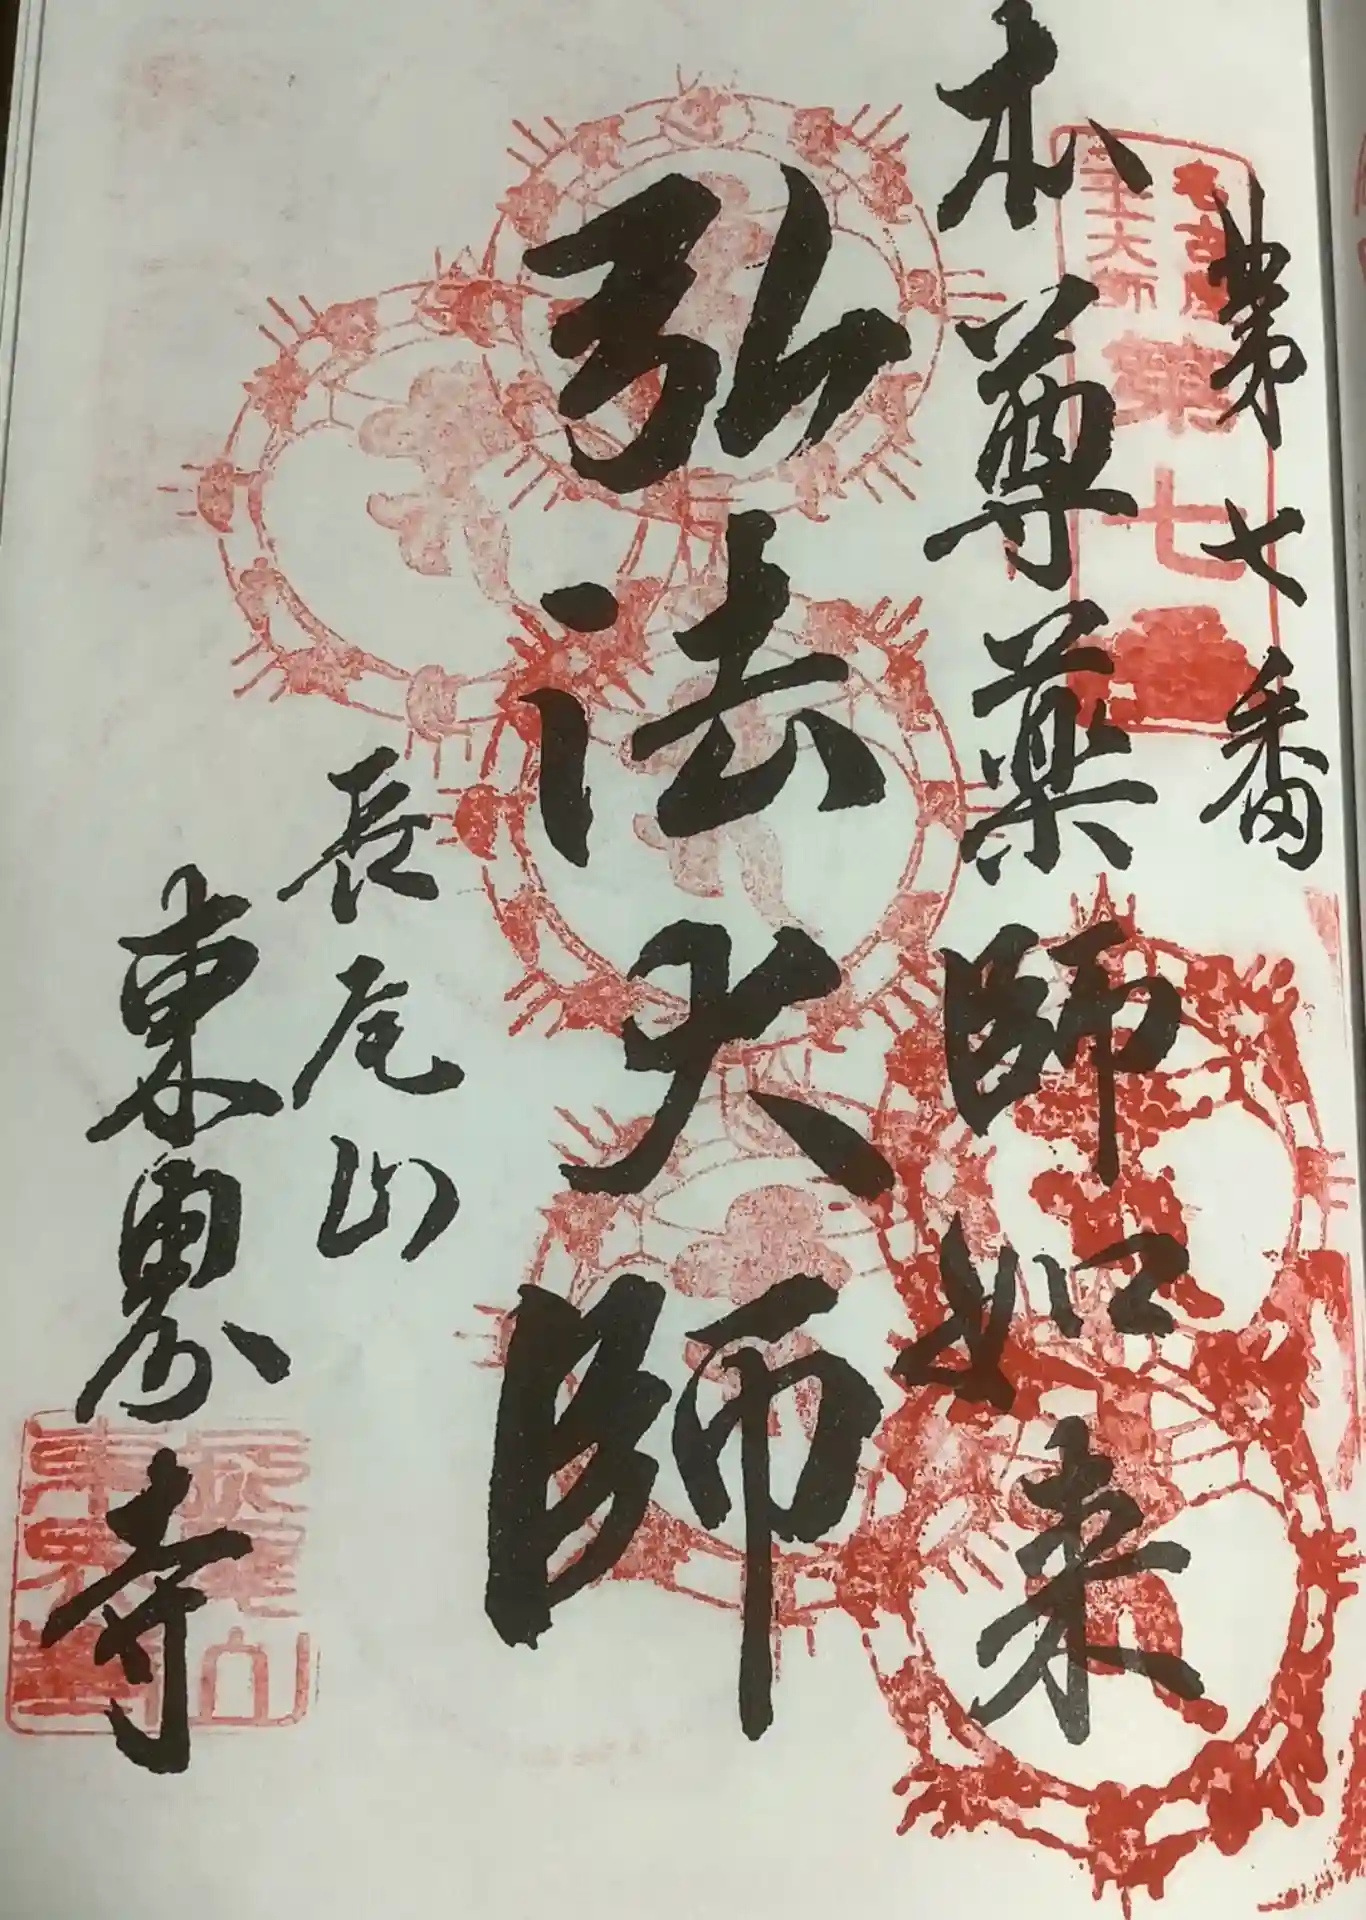 第七番
本尊薬師如来
弘法大師
長尾山
東界寺
名古屋
大師
第七番
長尾山
東界寺